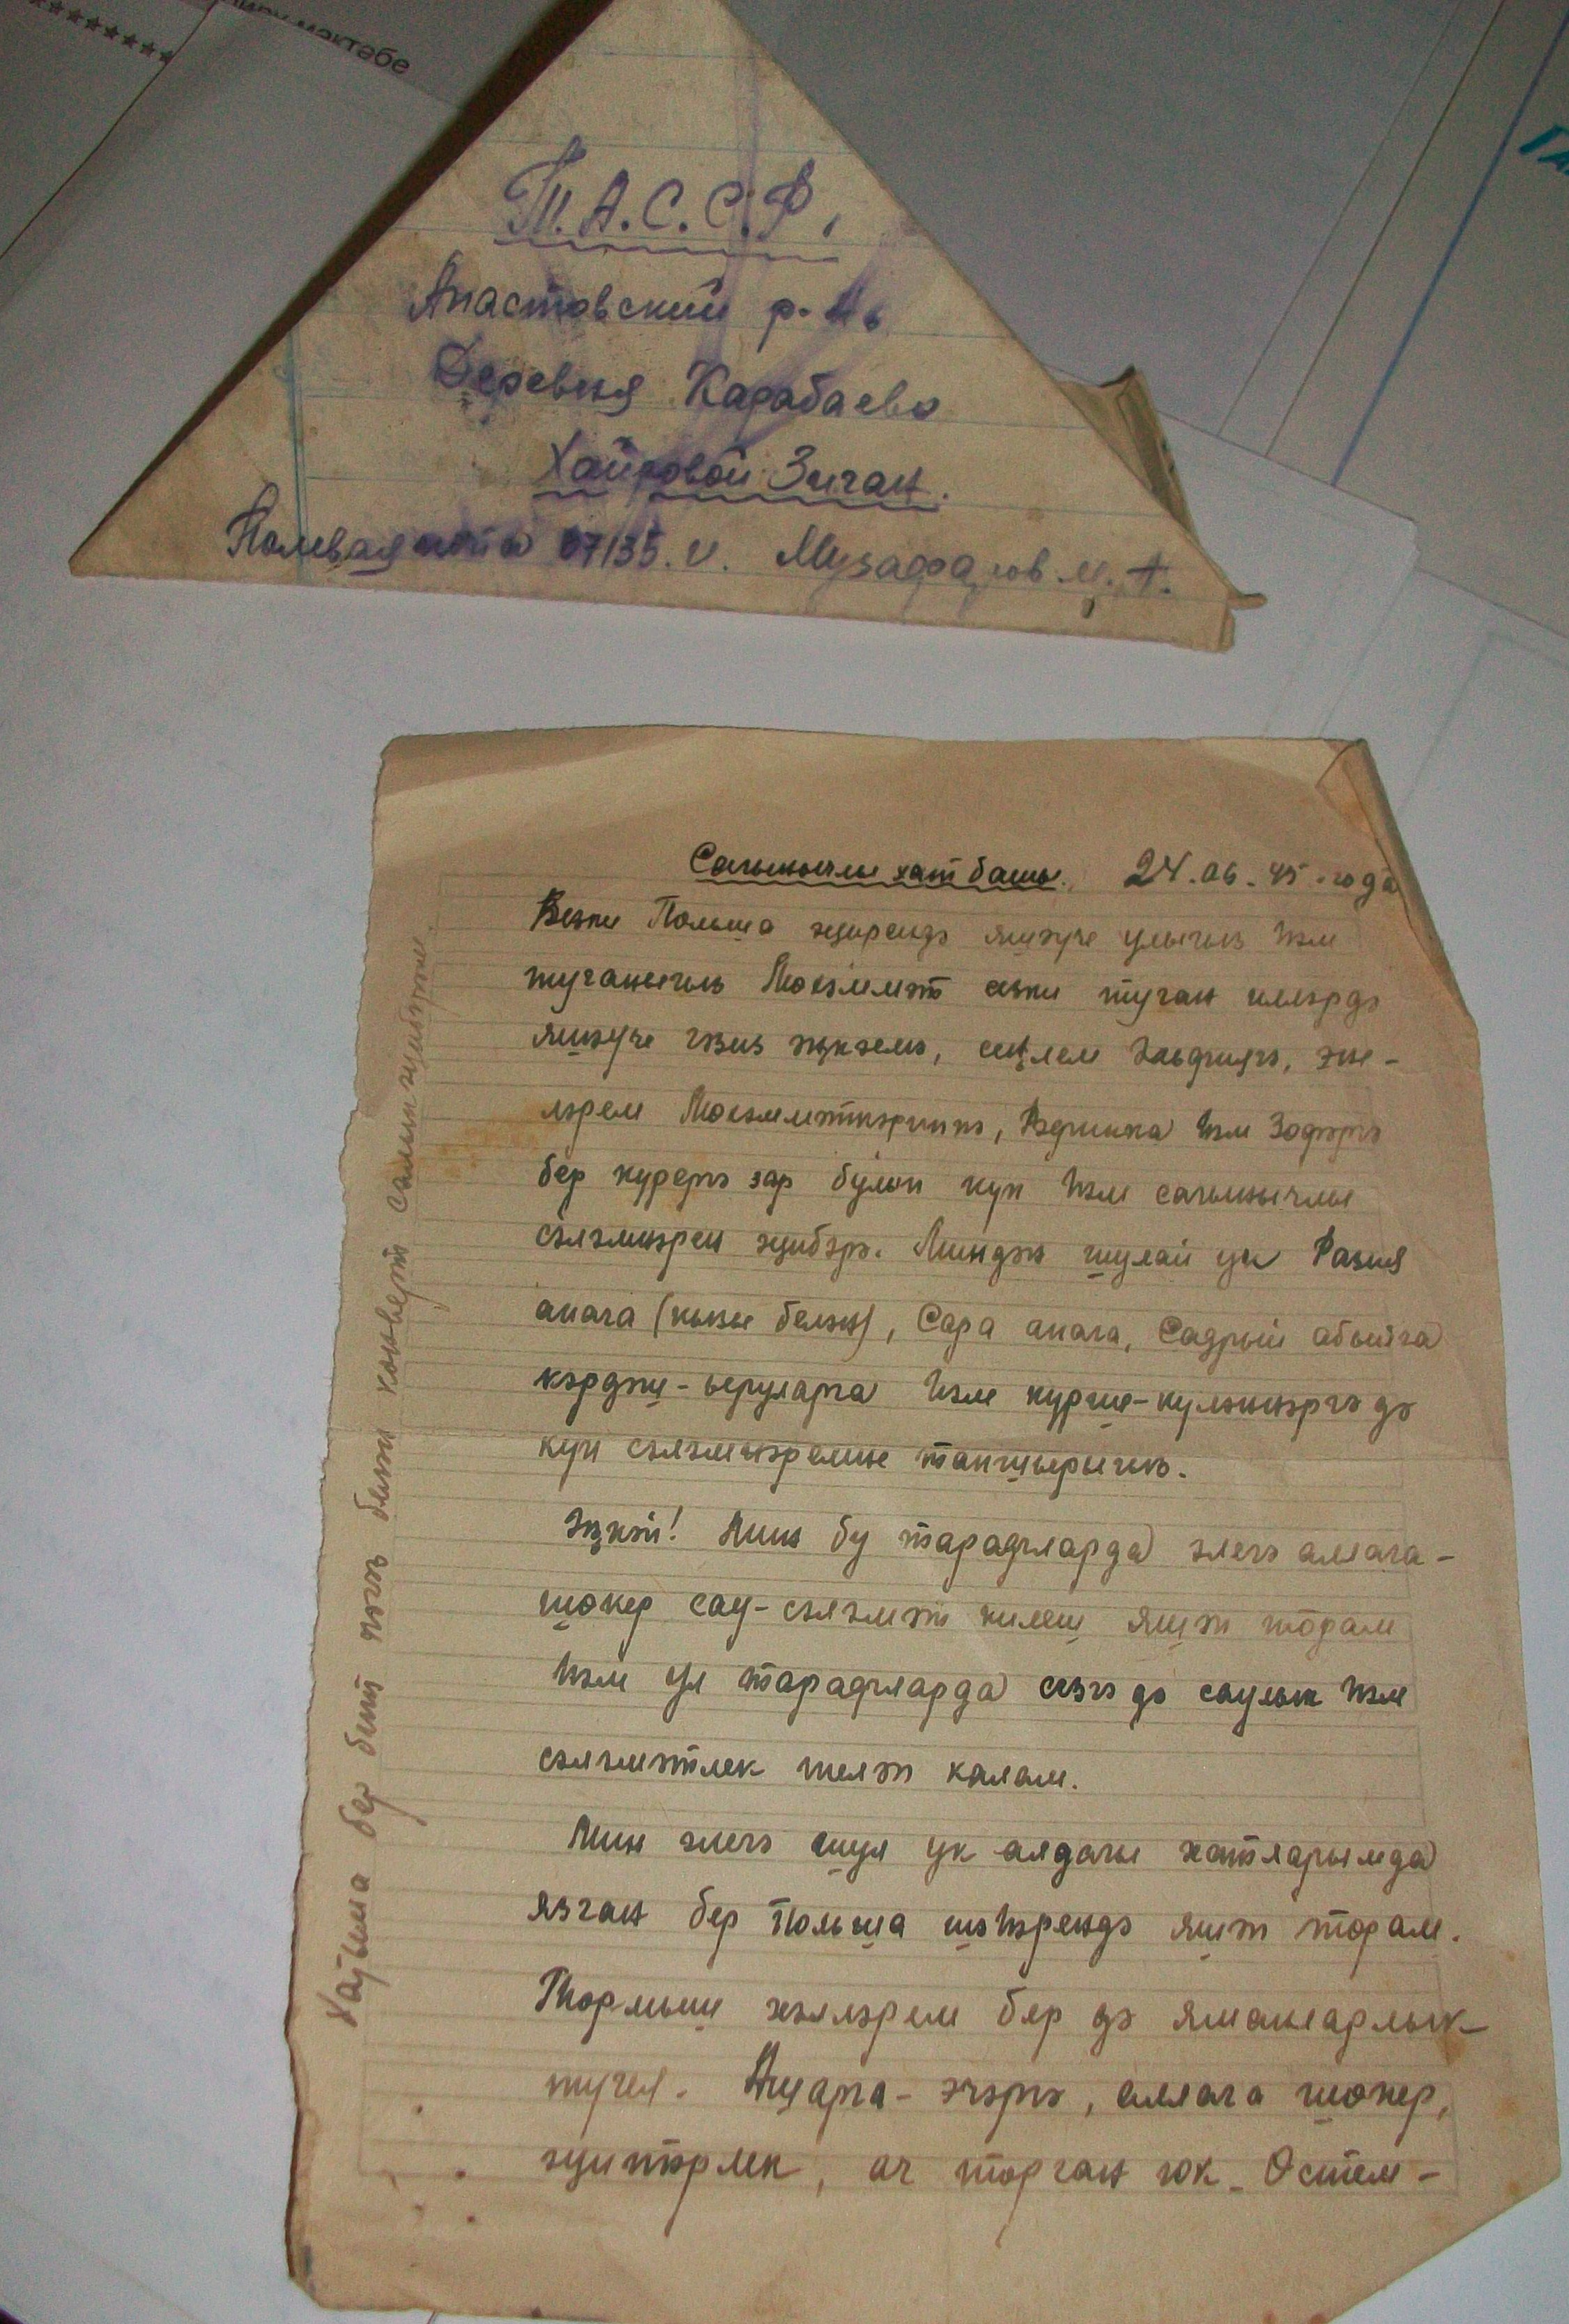 мәктәбе
Т.А.С.С.Р,
Апастовский р-нь
Деревня Карабаева
Хайровой Зиган.
Полевая почта 07135.v. Музафаров М. Г.
Сагынычлы хат башы. 24.06.45.года
Польша җирендә яшәүче улыгыз һәм
туганыгыз Мөхәммәт сезне туган илләрдә
яшәүче газиз әнкәемә, сеңлем, эне-
ләрем һәм
бер күрергә зар булып күп һәм сагынычлы
сәләмнәрен җибәрә. Миндән шулай ук Разия
апага (кызы белән), Сара апага, Садрый абыйга
кардәш-ыруларга һәм күрше-күләннәргә дә
күп сәләмнәремне тапшырыгыз.
Әнкәй! Мин бу тарафларда әлегә аллага-
шөкер сау-сәләмәт килеш яшәп торам
һәм ул тарафларда сезгә дә саулык һәм
сәләмәтлек теләп калам.
Мин әлегә шул ук алдагы хатларымда
язган бер Польша шәһәрендә яшәп торам.
Тормыш хәлләрем бер дә яманларлык
түгел. Ашарга-эчәргә, аллага шөкер,
җитәрлек, ач торган юк. Өстем-
бер бит кәгазь белән конверт салып җибәрәм.